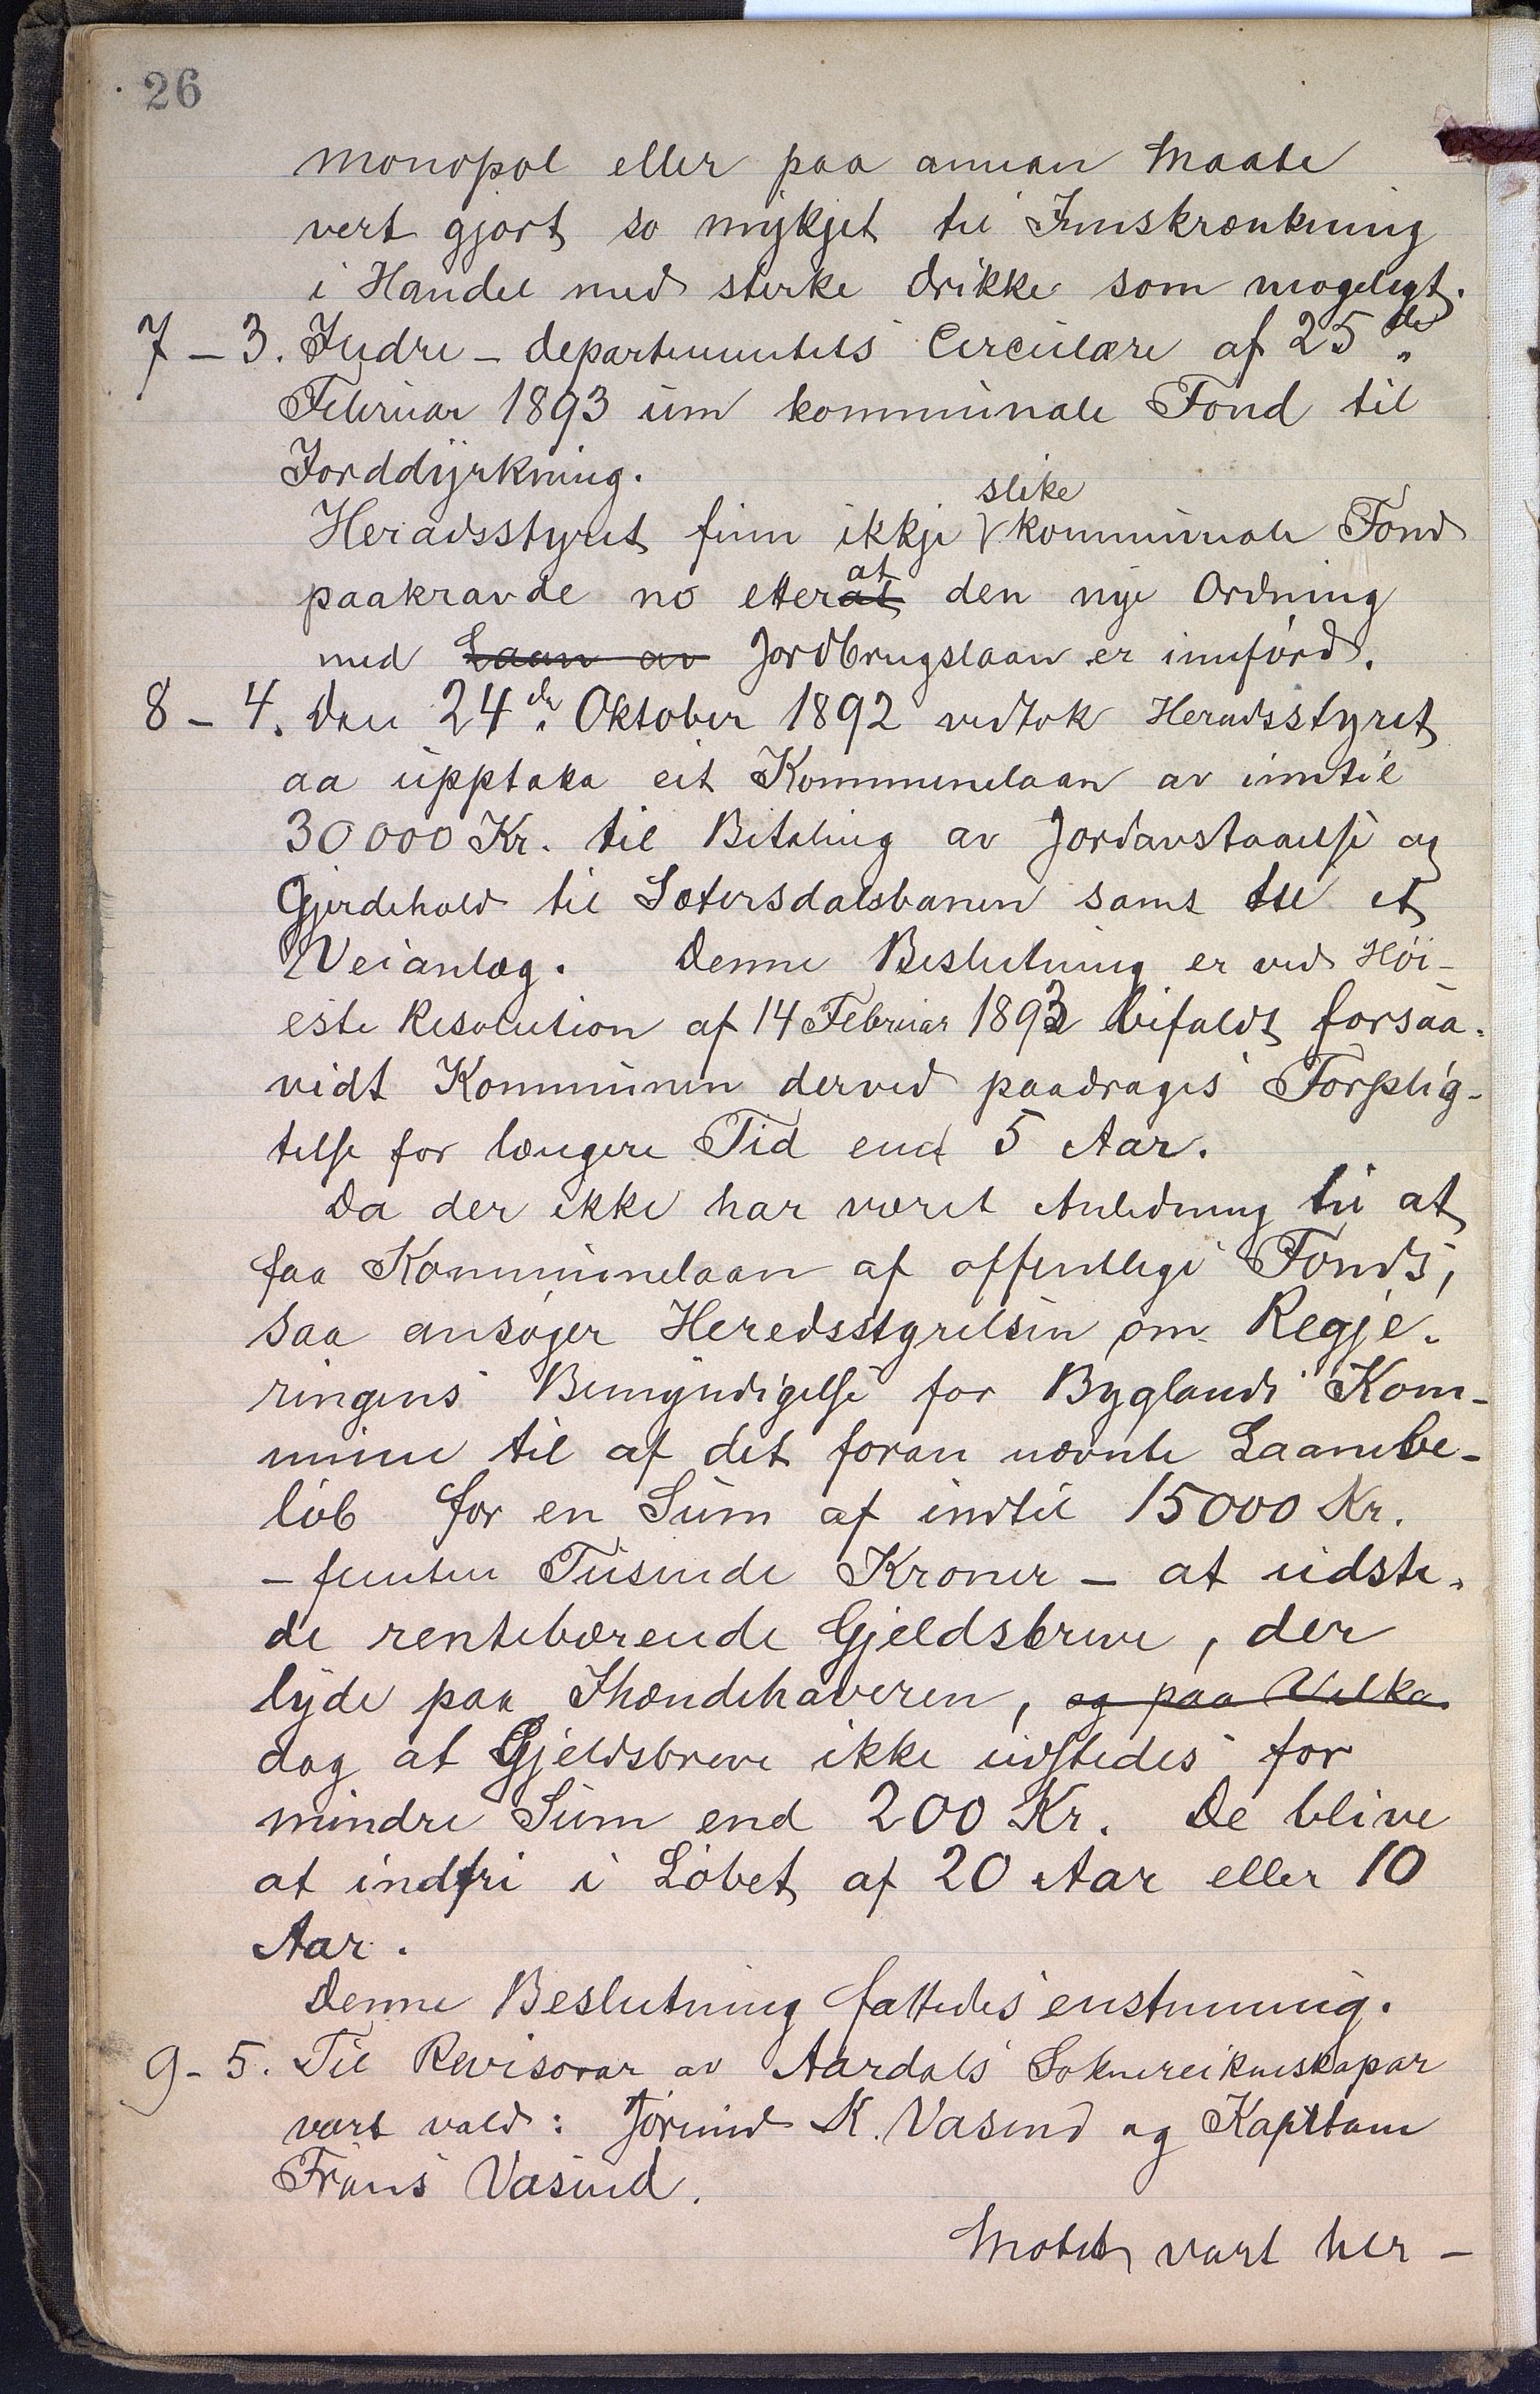 26
monopol eller paa annan Maate
vert gjort so mykjet til Innskrænkning
i Handel med sterke drikke som mogelegt.
7 – 3. Indre – departementets Circulære af 25de
Februar 1893 um kommunale Fond til
Jorddyrkning.
slike
Heradsstyret finn ikkje kommunale Fond
at
paakravde no etter at den nye Ordning
med Laan av Jordbrugslaan er innførd.
8 – 4. Den 24de Oktober 1892 vedtok Heradsstyret
aa upptaka eit Kommunelaan av inntil
30000 Kr. til Betaling av Jordavstaaelse og
Gjerdehold til Sætersdalsbanen samt til et
Veianlæg. Denne Beslutning er ved Høi-
este Resolution af 14 Februar 1893 bifaldt forsaa-
vidt Kommunen derved paadrages Forplig-
telse for længere Tid end 5 Aar.
Da der ikke har været Anledning til at
faa Kommunelaan af offentlige Fonds,
saa ansøger Heredsstyrelsen om Regje-
ringens Bemyndigelse for Byglands Kom-
mune til af det foran nævnte Laanebe-
løb for en Sum af indtil 15000 Kr.
– femten Tusende Kroner – at udste-
de rentebærende Gjeldsbreve, der
lyde paa Ihændehaveren, og paa Vilka
dog at Gjeldsbreve ikke udstedes for
mindre Sum end 200 Kr. De blive
at indfri i Løbet af 20 Aar eller 10
Aar.
Denne Beslutning fattedes enstemmig.
9 - 5. Til Revisorar av Aardals Soknereikneskapar
vart vald: Jørund K. Vasend og Kaptein
Frans Vasend.
Møtet vart her –